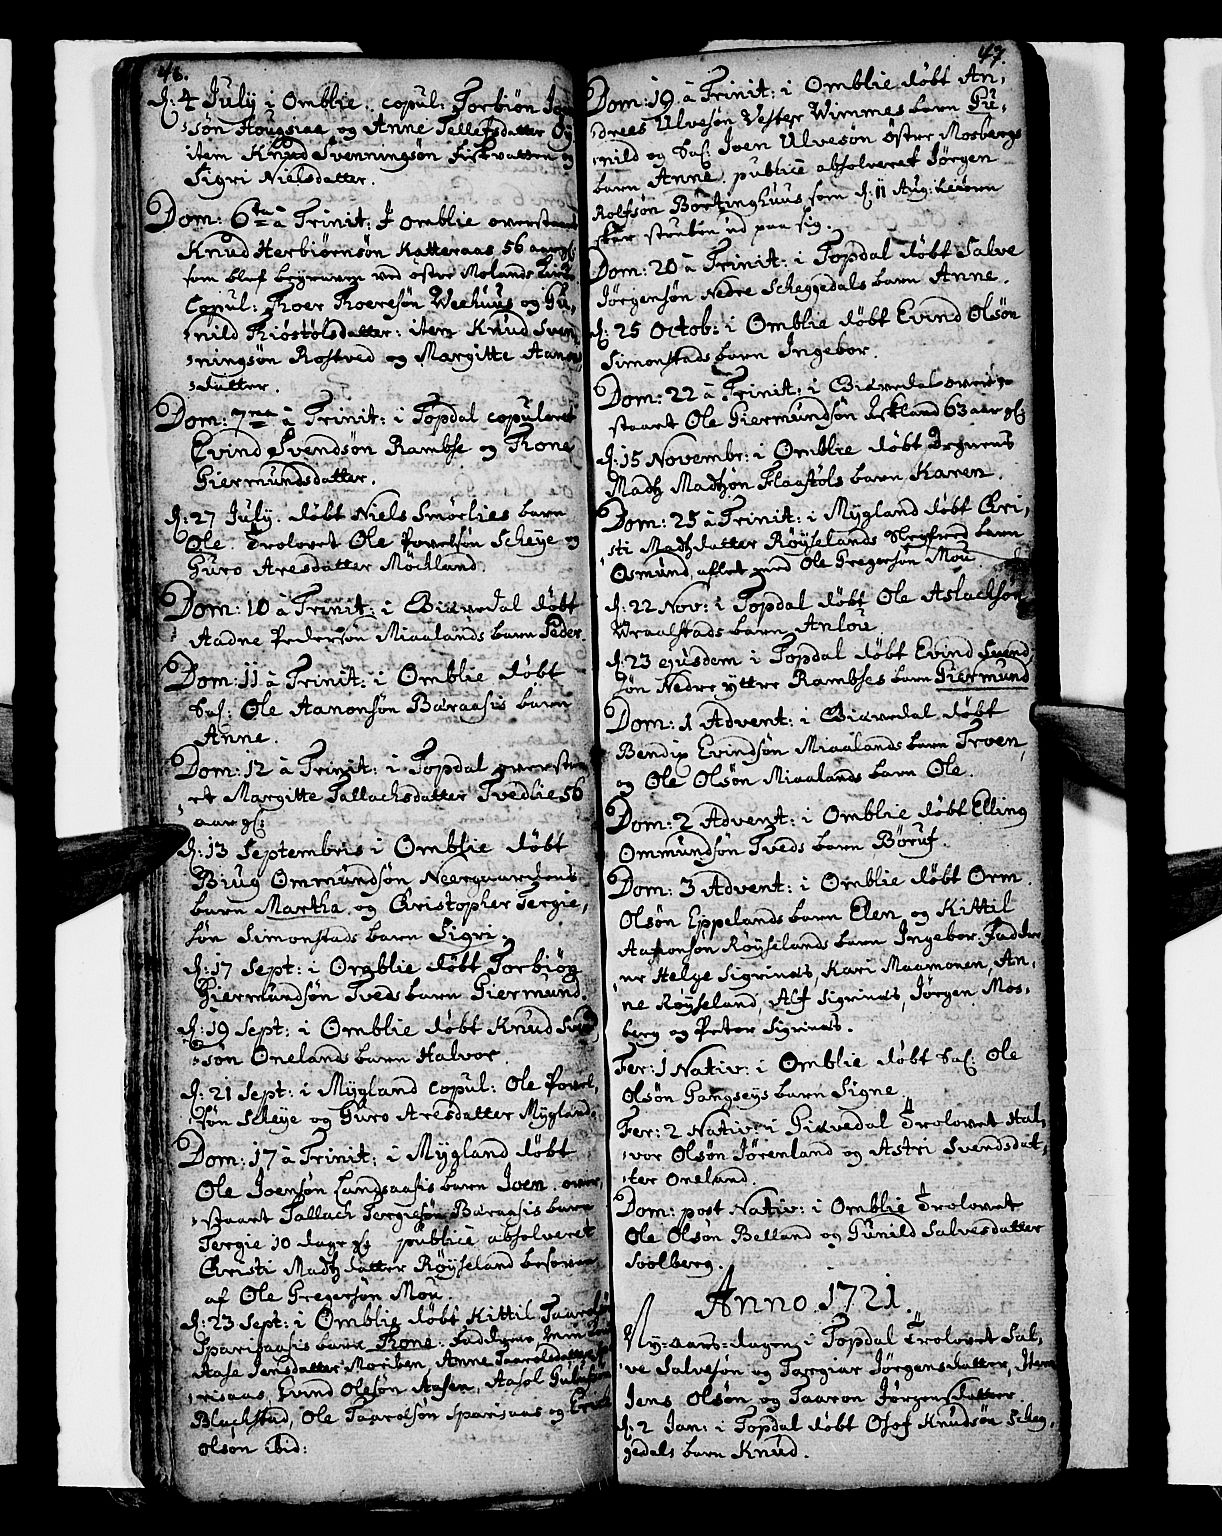 46.
d: 4 July i Omblie. copul: Torbiøn
søn Hougsiae og Anne Tellefsdatter
item Knud Svenningsøn Fiskvatten og
Sigri Nielsdatter.
Dom: 6ta à Trinit: I Omblie overstaaet
Knud Herbiørnsøn Katteraas 56 aar gl:
som blef begraven ved øster Molands
Copul: Roer Roersøn Weehuus og Gu,
,nild Kiøstølsdatter: item Knud Sven,
,ningsøn Rostved og Margitte Aanons
,datter.
Dom: 7ma à Trinit: i Topdal copuleret
Evind Svendsøn Rambse og Tone
Giermundsdatter.
d: 27 July. døbt Niels Smørlies barn
Ole. Trolovet Ole Povelsøn Scheye og
Guro Aresdatter Møckland.
Dom: 10 à Trinit: i Giøvedal døbt
Aadne Pedersøn Miaalands barn Peder.
Dom: 11 à Trinit: i Omblie døbt
Sal: Ole Aanonsøn Baraasis barn
Anne.
Dom: 12 à Trinit: i Topdal overstaa,
,et Margitte Tallachsdatter Tvedlie 56
aar gl:
d: 13 Septembris i Omblie døbt
Brug Ommundsøn Neergaardens
barn Martha. og Christopher Tergie,
søn Simonstads barn Sigri.
d: 17 Sept: i Omblie døbt Torbiøn
Giermundsøn Tveds barn Giermund.
d: 19 Sept: i Omblie døbt Knud Svend
søn Onelands barn Halvor.
d: 21 Sept: i Mygland copul: Ole Povel,
søn Scheye og Guro Aresdatter Mygland.
Dom: 17 à Trinit: i Mygland døbt
Ole Joensøn Landsaasis barn Joen. over,
,staaet Tallach Tergiesøn Baraasis barn
Tergie 10 dage gl publice absolveret
Christi Madtzdatter Røyseland besoven
af Ole Gregersøn Mou.
d: 23 Sept: i Omblie døbt Kittil Taarolsøn
Sparisaasis barn Tone: Faddere
Aase Jensdatter Moriben, Anne Taarolsdatter
risaas, Evind Olesøn Aasen, Aasol
Blachstad, Ole Taarolsøn Sparisaas og
Olson ibid:
47.
Dom: 19 à Trinit: i Omblie døbt An,
,drees Ulvesøn Vester Wimmes barn Gu,
,nild og Sal: Joen Ulvesøn Øster Mosbergs
barn Anne. publice absolveret Jørgen
Rolfsøn Børtinghuus som d: 11 Aug:
Dom: 20 à Trinit: i Topdal døbt Salve
Jørgensøn Nedre Scheggedals barn Anne.
d: 25 Octob: i Omblie døbt Evind Olsøn
Simonstads barn Ingebor.
Dom: 22 à Trinit: i Giøvedal over,
staaet Ole Giermundsøn Askland 63 aar gl:
d: 15 Novembr: i Omblie døbt Degnens
Madtz Madtzøn Flaastøls barn Karen.
Dom: 25 à Trinit: i Mygland døbt Chri,
sti Madtzdatter Røyselands Slegfred barn
Osmund, aflet med Ole Gregersøn Mou.
d: 22 Nov: i Topdal døbt Ole Aslachsøn
Wraalstads barn Anlou.
d: 23 ejusdem i Topdal døbt Evind Svend,
søn Nedre yttre Rambses barn Giermund
Dom: 1 Advent: i Giøvedal døbt
Bendix Evindsøn Miaalands barn Troen,
og Ole Olsøn Miaalands barn Ole.
Dom: 2 Advent: i Omblie døbt Elling
Ommundsøn Tveds barn Børuf.
Dom: 3 Advent: i Omblie døbt Orm
Olsøn Eppelands barn Elen, og Kittil
Aanonsøn Røyselands barn Ingebor. Fadder
,ne Helge Sigrinæs, Kari Maamonen, An,
ne Røyseland, Alf Sigrinæs, Jørgen Mos,
berg og Peter Sigrinæs.
Fer: 1 Nativ: i Omblie døbt Sal: Ole
Olsøn Gangseys barn Signe
Fer: 2 Nativ: i Giøvedal Trolovet Hal,
,vor Olsøn Jørenland og Astri Svendsdat,
,ter Oneland.
Dom: post Nativ: i Omblie Trolovet
Ole Olsøn Belland og Gunild Salvesdatter
Soolberg.
Anno 1721.
Ny-aars-dagen i Topdal Trolovet Sal,
,ve Salvesøn og Torgiær Jørgensdatter, Item
Jens Olsøn og Taaron Jørgensdatter
d: 2 Jan: i Topdal døbt Olof Knudsøn Scheg,
gedals barn Knud.